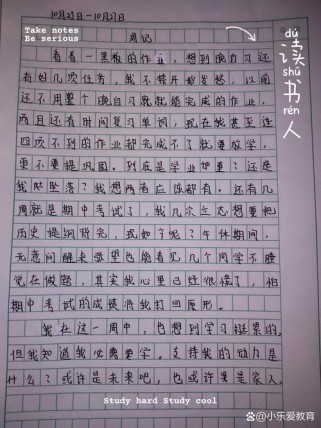 10月23日-10月27日
Take notes
Be serious
周记
dú
读
shū
书
rén
人
看着一黑板的作业，想到晚自习还
有好几项任务，我不禁开始发愁，以前
还不用整个晚自习就能完成的作业，
而且还有时间复习单词，现在我甚至连
四项不到的作业都完成不了就要放学，
更不要提巩固。到底是学业加重？还是
我堕落了？我想两者应该都有。还有几
周就是期中考试了，我几次立志想要把
历史提纲背完，现如今呢？午休期间，
无意间醒来总能看见几个同学不睡
觉在做题，其实我心里已经很慌了，但
期中考试的成绩将我打回原形。
我在这一周中，也想到学习挺累的，
但我知道我必需要学。支持我的动力是
什么？或许是未来吧，也或许是家人。
Study hard Study cool
@小乐爱教育